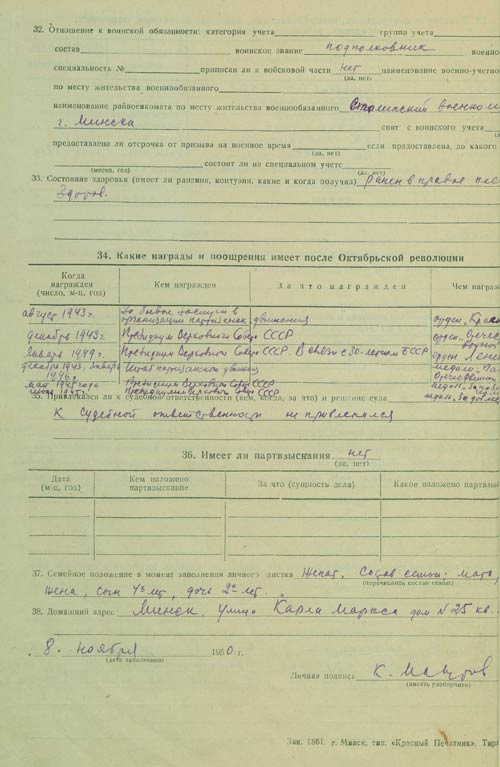 32. Отношение к воинской обязанности: категория учета группа учета
состав воинское звание подполковник военно
специальность № приписан ли к войсковой части нет наименование военно-учетн
(да, нет)
по месту жительства военнообязанного
наименование райвоенкомата по месту жительства военнообязанного Сталинский военком
г. Минска снят с воинского учета
предоставлена ли отсрочка от призыва на военное время если предоставлена, до какого
(да, нет)
состоит ли на специальном учете
(месяц, год) (да, нет)
33. Состояние здоровья (имеет ли ранения, контузии, какие и когда получил) Ранен в правое пле
Здоров.
34. Какие награды и поощрения имеет после Октябрьской революции
Когда награжден (число, м-ц, год) Кем награжден За что награжден Чем награж
август 1943 г. За боевые заслуги в организации партизанск. движения орден „Крас
декабрь 1943 г. Президиум Верховного Совета СССР орден Отечес
января 1949 г. Президиум Верховного Совета СССР. В связи с 30-летием БССР орден Ленин
декабрь 1943, январь 1946 г. штаб партизанского движения медаль Па
Отечественной
май 1945 года Президиум Верховн. Совета СССР
июнь 1945 г. Президиум Верховного Совета СССР медаль За доблес
35. Привлекался ли к судебной ответственности (кем, когда, за что) и решение суда
К судебной ответственности не привлекался
36. Имеет ли партвзыскания нет
(да, нет)
Дата (м-ц, год) Кем наложено партвзыскание За что (сущность дела) Какое наложено партвзы
37. Семейное положение в момент заполнения личного листка Женат. Состав семьи: мать,
(перечислить состав семьи)
жена, сын 4х лет, дочь 2х лет.
38. Домашний адрес Минск, улица Карла Маркса дом № 25 кв.
„8„ ноября 1950 г.
(дата заполнения)
Личная подпись К. Мазуров
(писать разборчиво)
Зак. 1861. г. Минск, тип. «Красный Печатник». Тир